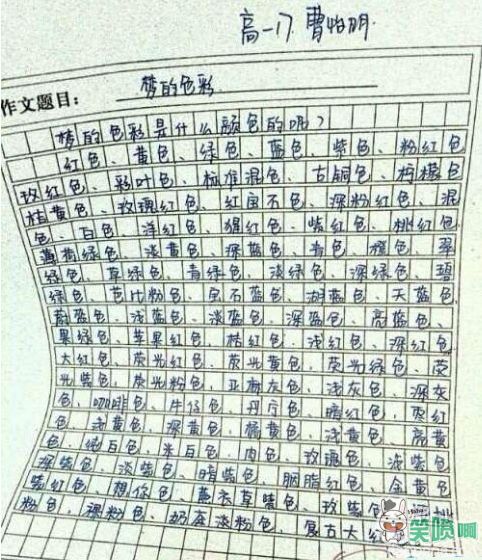 高一17 曹怡朋
作文题目： 梦的色彩
梦的色彩是什么颜色的呢？
红色、黄色、绿色、蓝色、紫色、粉红色
玫红色、彩叶色、标准混色、古铜色、柠檬色
桔黄色、玫瑰红色、红宝石色、深粉红色、混
色、白色、洋红色、猩红色、紫红色、桃红色
薄荷绿色、淡黄色、深蓝色、青色、橙色、翠
绿色、草绿色、青绿色、淡绿色、深绿色、碧
绿色、芭比粉色、宝石蓝色、湖蓝色、天蓝色
蔚蓝色、浅蓝色、淡蓝色、深蓝色、亮蓝色、
果绿色、苹果红色、桔红色、浅红色、深红色
大红色、荧光红色、荧光黄色、荧光绿色、荧
光紫色、荧光粉色、亚麻灰色、浅灰色、深灰
色、咖啡色、牛仔色、丹宁色、暗红色、枣红
色、浅黄色、深黄色、橘黄色、浅黄色、亮黄
色、纯白色、米白色、肉色、玫瑰色、浅紫色
深紫色、淡紫色、暗紫色、胭脂红色、金黄色
紫红色、想你色、薰衣草紫色、玫紫色、桃
粉色、裸粉色、奶茶淡粉色、复古大红
笑喷啊